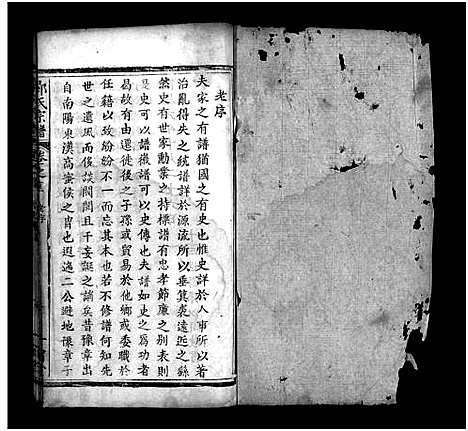 老序
夫家之有譜猶國之有史也惟史詳於人事所以著
治亂得失之統譜詳於源流所以垂箕裘遠近之緜
然史有世家勳業之持標譜有忠孝節廉之別表則
是史可以譜微譜可以史傳也夫譜如史之為功者
曷故有由遷徙後之子孫或貿易於他鄉或委職於
任籍以故紛紛不一而忘其本也若不修譜何知先
世之遺風而侈談閥閱且干妄誕之誚矣昔豫章出
自南陽東漢高蜜侯之胄也迥迤二公避地豫章子
氏宗譜